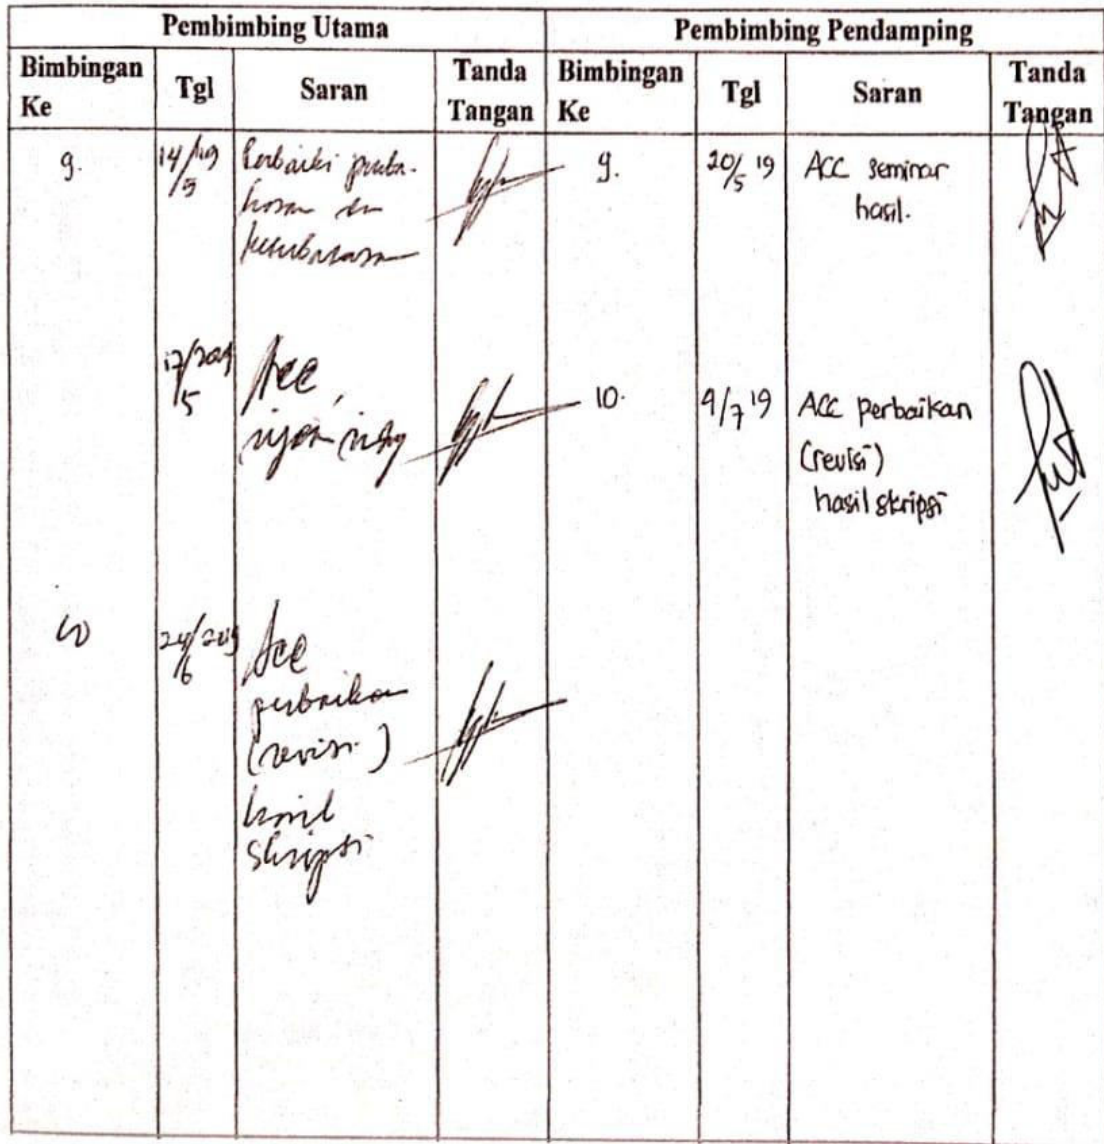 Pembimbing Utama Pembimbing Pendamping
Bimbingan Ke Tgl Saran Tanda Tangan Bimbingan Ke Tgl Saran Tanda Tangan
9. 14/5 9. 20/5 19 ACC seminar
hasil.
17/2019 5 Acc 10. 9/7 19 ACC perbaikan
(revisi)
hasil skripsi
10 24/2019 6 Acc
perbaikan
(revisi)
hasil
skripsi